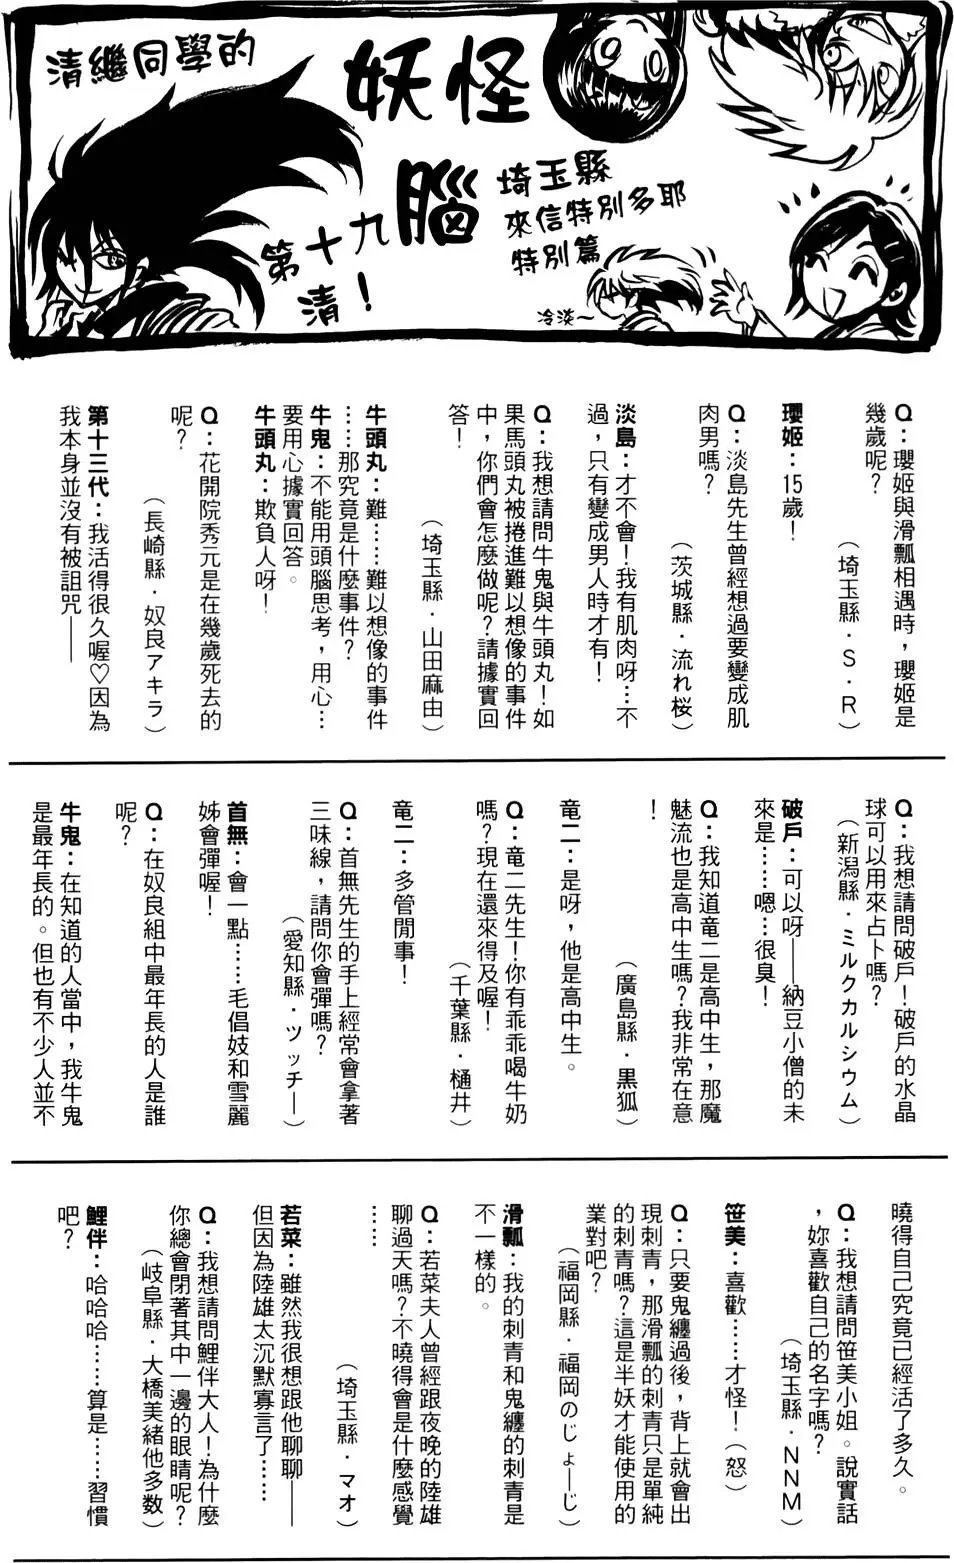 清繼同學的
妖怪
腦
第十九
清！
埼玉縣
來信特別多耶
特別篇
冷淡～
Q：瓔姬與滑瓢相遇時，瓔姬是
幾歲呢？
（埼玉縣．S．R）
瓔姬：15歲！
Q：淡島先生曾經想過要變成肌
肉男嗎？
（茨城縣．流れ桜）
淡島：才不會！我有肌肉呀…不
過，只有變成男人時才有！
Q：我想請問牛鬼與牛頭丸！如
果馬頭丸被捲進難以想像的事件
中，你們會怎麼做呢？請據實回
答！
（埼玉縣．山田麻由）
牛頭丸：難……難以想像的事件
……那究竟是什麼事件？
牛鬼：不能用頭腦思考，用心…
要用心據實回答。
牛頭丸：欺負人呀！
Q：花開院秀元是在幾歲死去的
呢？
（長崎縣．奴良アキラ）
第十三代：我活得很久喔♡因為
我本身並沒有被詛咒——
Q：我想請問破戶！破戶的水晶
球可以用來占卜嗎？
（新潟縣．ミルクカルシウム）
破戶：可以呀——納豆小僧的未
來是……嗯…很臭！
Q：我知道竜二是高中生，那魔
魅流也是高中生嗎？我非常在意
！
（廣島縣．黑狐）
竜二：是呀，他是高中生。
Q：竜二先生！你有乖乖喝牛奶
嗎？現在還來得及喔！
（千葉縣．樋井）
竜二：多管閒事！
Q：首無先生的手上經常會拿著
三味線，請問你會彈嗎？
（愛知縣．ツッチー）
首無：會一點……毛倡妓和雪麗
姊會彈喔！
Q：在奴良組中最年長的人是誰
呢？
牛鬼：在知道的人當中，我牛鬼
是最年長的。但也有不少人並不
曉得自己究竟已經活了多久。
Q：我想請問笹美小姐。說實話
，妳喜歡自己的名字嗎？
（埼玉縣．NNM）
笹美：喜歡……才怪！（怒）
Q：只要鬼纏過後，背上就會出
現刺青，那滑瓢的刺青只是單純
的刺青嗎？這是半妖才能使用的
業對吧？
（福岡縣．福岡のじょーじ）
滑瓢：我的刺青和鬼纏的刺青是
不一樣的。
Q：若菜夫人曾經跟夜晚的陸雄
聊過天嗎？不曉得會是什麼感覺
……
（埼玉縣．マオ）
若菜：雖然我很想跟他聊聊——
但因為陸雄太沉默寡言了……
Q：我想請問鯉伴大人！為什麼
你總會閉著其中一邊的眼睛呢？
（岐阜縣．大橋美緒他多数）
鯉伴：哈哈哈……算是……習慣
吧？